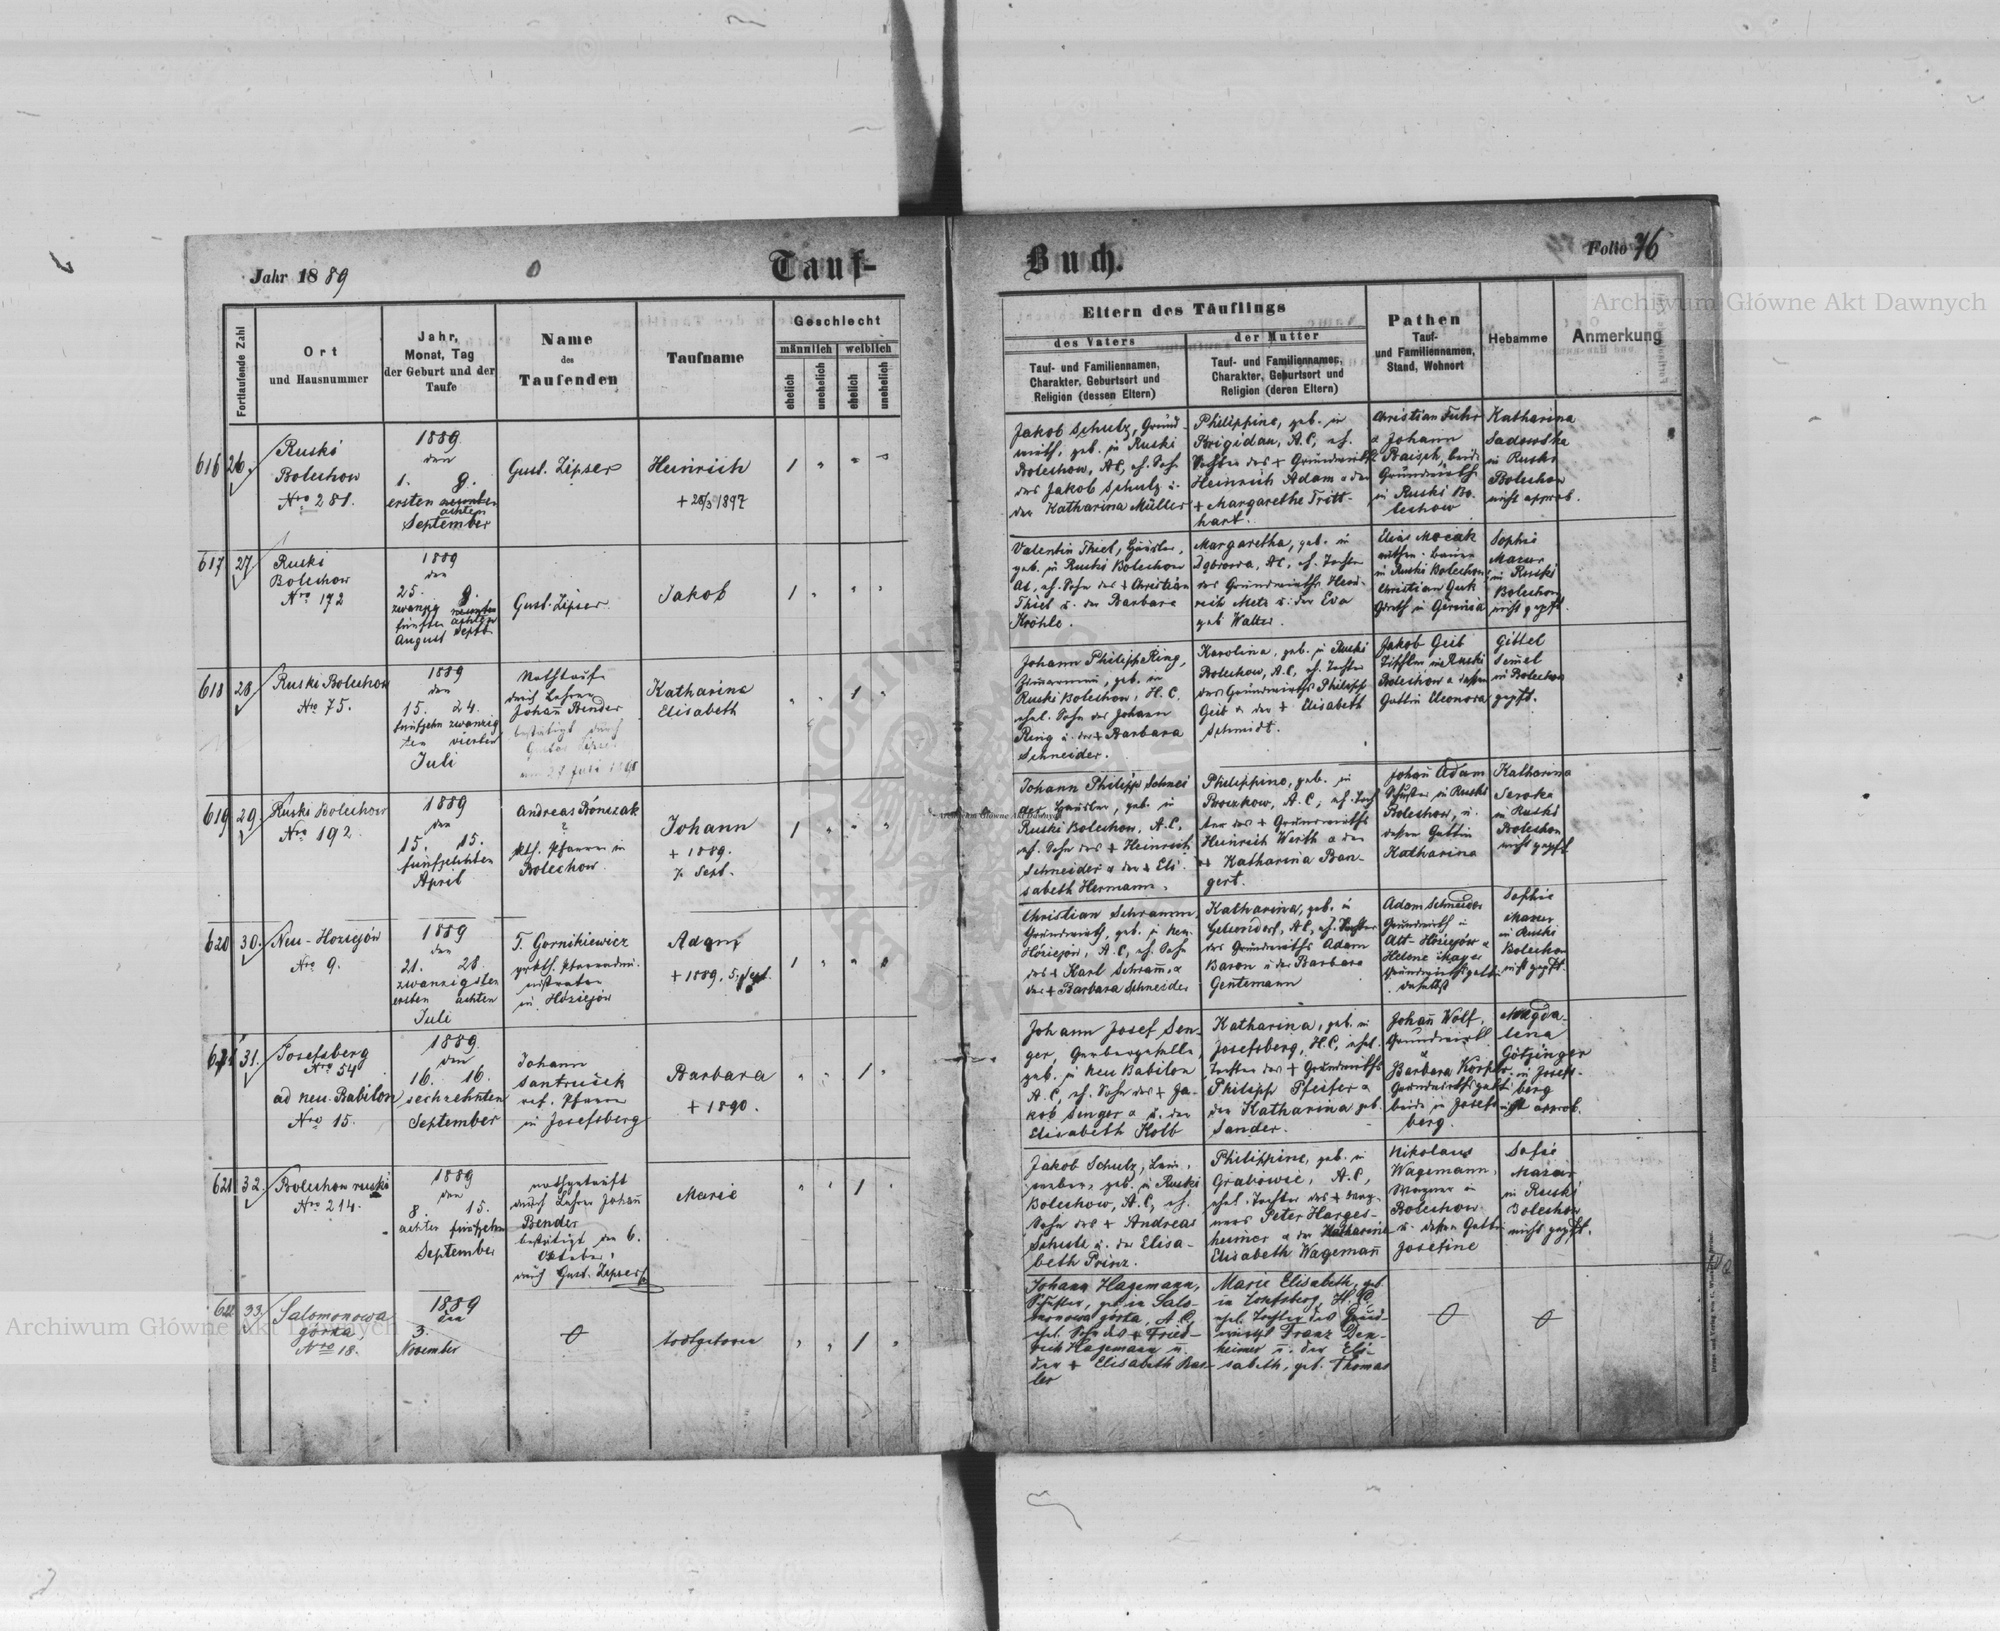 Jahr 1889
Tauf-
Buch.
Folio 76
Fortlaufende Zahl
Ort
und Hausnummer
Jahr,
Monat, Tag
der Geburt und der
Taufe
Name
des
Taufenden
Taufname
Geschlecht
männlich
weiblich
ehelich
unehelich
ehelich
unehelich
Eltern des Täuflings
des Vaters
der Mutter
Tauf- und Familiennamen,
Charakter, Geburtsort und
Religion (dessen Eltern)
Tauf- und Familiennamen,
Charakter, Geburtsort und
Religion (deren Eltern)
Pathen
Tauf-
und Familiennamen,
Stand, Wohnort
Hebamme
Anmerkung
616 26.
Ruski
Bolechow
Nro 281.
1889
den
1. 9.
ersten neunten
achten
September
Gust. Zipser
Heinrich
1
Jakob Schulz, Grund-
wirth, geb. in Ruski
Bolechow, AC, eh. Sohn
des Jakob Schulz u.
der Katharina Müller
Philippine, geb. in
Brigidau, A.C, eh.
Tochter des + Grundwirths
Heinrich Adam u der
+ Margarethe Tritt-
hart.
Christian Fuhr
u Johann
Raisch, beide
Grundwirthe
in Ruski Bo-
lechow
Katharina
Sadowska
in Ruski
Bolechow
nicht approb.
617 27
Ruski
Bolechow
Nro 172
1889
den
25. 8.
zwanzig neunten
fünften achten
August Sept.
Gust. Zipser.
Jakob
1
Valentin Thiel, Häusler,
geb. in Ruski Bolechow
AC, eh. Sohn des + Christian
Thiel u. der Barbara
Kröhle.
Margaretha, geb. in
AC, eh. Tochter
des Grundwirths Hein-
rich Metz u. der Eva
geb Walter.
Elias Mocak
in Ruski Bolechow
Christian Guk
Sophie
Mazur
in Ruski
Bolechow
nicht gepft.
618 28
Ruski Bolechow
Nro 75.
1889
den
15. 24.
fünfzehn zwanzig
ten vierten
Juli
Nothtaufe
durch Lehrer
Johañ Bender
bestätigt durch
Katharina
Elisabeth
1
Johann Philipp Ring,
Zimmermann, geb. in
Ruski Bolechow, H.C.
ehel. Sohn des Johann
Ring u. der + Barbara
Schneider.
Karolina, geb. in Ruski
Bolechow, A.C, eh. Tochter
des Grundwirths Philipp
Geib u der + Elisabeth
Schmidt.
Jakob Geib
Tischler in Ruski
Bolechow u dessen
Gattin Eleonora
Gittel
Semel
in Bolechow
gepft.
619 29
Ruski Bolechow
Nro 192.
1889
den
15. 15.
fünfzehnten
April
Andreas Bończak
Pfarrer in
Bolechow.
Johann
+ 1889.
7. Sept.
1
Johann Philipp Schnei
der Häusler, geb. in
Ruski Bolechow, A.C,
eh. Sohn des + Heinrich
Schneider u der + Eli
sabeth Hermann.
Philippine, geb. in
A.C, eh. Toch
ter des + Grundwirths
Heinrich Werth u der
+ Katharina Ban-
gert.
Johañ Adam
Schuster in Ruski
Bolechow, u.
dessen Gattin
Katharina
Katharina
Seroka
in Ruski
Bolechow
nicht gepft
620 30.
Neu-Hoziejów
Nro 9.
1889
den
21. 28.
zwanzigsten
ersten achten
Juli
T. Gornikiewicz
grkth. Pfarradmi-
nistrator
in Hoziejów
Adam
+ 1889. 5. Sept.
1
Christian Schramm,
Grundwirth, geb. in Neu
Hoziejów, A.C, eh. Sohn
des + Karl Schram̄, u
der + Barbara Schneider
Katharina, geb. in
Gelsendorf, AC, eh. Tochter
des Grundwirths Adam
Baron u der Barbara
Gentemann
Adam Schneider
Grundwirth in
Alt-Hoziejów u
Helene Mayer
Grundwirthsgattin
daselbst
Sophie
Mazur
in Ruski
Bolechow
nicht gepft.
621 31.
Josefsberg
Nro 54
ad neu-Babilon
Nro 15.
1889.
den
16. 16.
sechzehnten
September
Johann
Santrušek
ref. Pfarrer
in Josefsberg
Barbara
+ 1890.
1
Johann Josef Sen-
ger, Gerbergeselle,
geb. in Neu Babilon
A.C, eh. Sohn des + Ja-
kob Senger u. der
Elisabeth Kolb
Katharina, geb. in
Josefsberg, H.C, ehel.
Tochter des + Grundwirths
Philipp Pfeifer u
der Katharina geb.
Sander.
Johañ Wolf,
Grundwirth
u
Barbara Korper,
Grundwirthsgattin
beide in Josefs-
berg.
Magda-
lena
Götzinger
in Josefs-
berg
nicht approb.
621 32.
Bolechow ruski
Nro 214.
1889
den
8. 15.
achten fünfzehn
September
nothgetauft
durch Lehrer Johañ
Bender
bestätigt den 6.
Oktober
durch Gust. Zipser
Marie
1
Jakob Schulz, Lein-
weber, geb. in Ruski
Bolechow, A.C, eh.
Sohn des + Andreas
Schulz u. der Elisa-
beth Prinz.
Philippine, geb. in
Grabowie, A.C,
ehel. Tochter des +
Peter Harges-
heimer u der Katharine
Elisabeth Wagemañ
Nikolaus
Wagemann,
Wagner in
Bolechow
u. dessen Gattin
Josefine
Sofie
Mazur
in Ruski
Bolechow
nicht gepft.
622 33
Salomonowa
górka
Nro 18.
1889
den
3.
November
todtgeboren
1
Johann Hagemann,
geb in Salo-
monowa górka, A.C,
ehel. Sohn des + Fried-
rich Hagemann u.
der + Elisabeth Bas-
ler
Marie Elisabeth, geb.
in Josefsberg, H.C,
ehel. Tochter des Grund-
wirths Franz Den-
heimer u. der Eli-
sabeth, geb. Thomas
Archiwum Główne Akt Dawnych
Archiwum Główne Akt Dawnych
Archiwum Główne Akt Dawnych